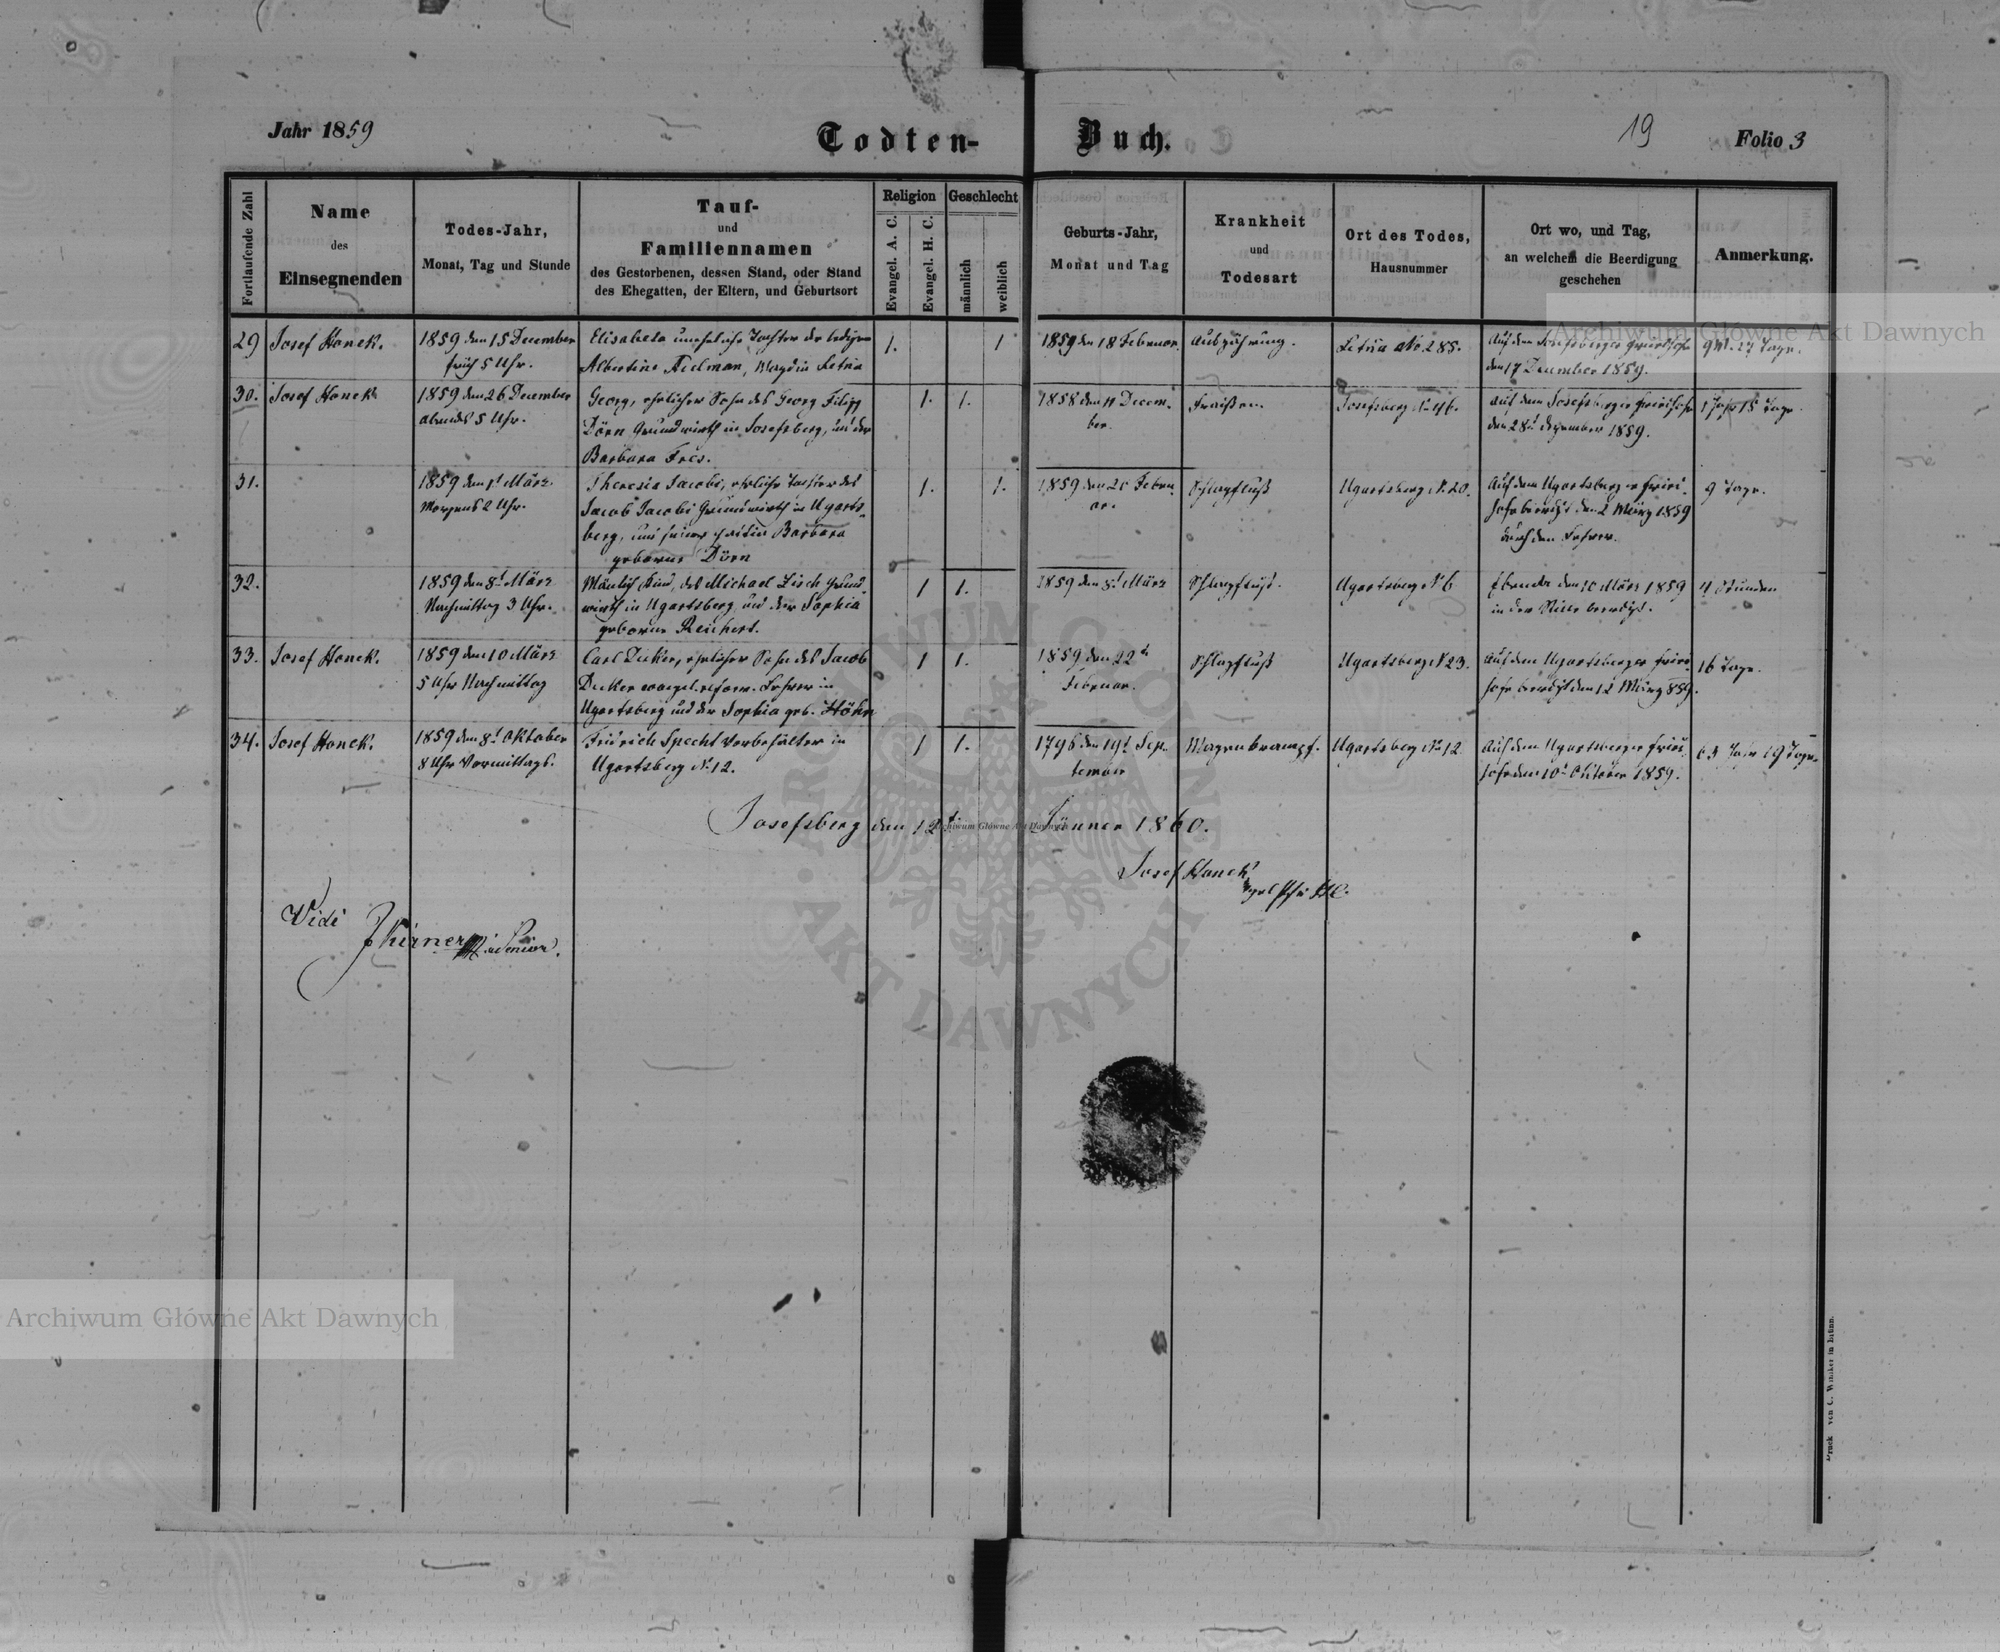 Jahr 1859
Todten-Buch.
19
Folio 3
Fortlaufende Zahl
Name
des
Einsegnenden
Todes-Jahr,
Monat, Tag und Stunde
Tauf-
und
Familiennamen
des Gestorbenen, dessen Stand, oder Stand
des Ehegatten, der Eltern, und Geburtsort
Religion
Evangel. A. C.
Evangel. H. C.
Geschlecht
männlich
weiblich
Geburts-Jahr,
Monat und Tag
Krankheit
und
Todesart
Ort des Todes,
Hausnummer
Ort wo, und Tag,
an welchem die Beerdigung
geschehen
Anmerkung.
29
Josef Honek.
1859 den 15 December
früh 5 Uhr.
Elisabeta uneheliche Tochter der ledigen
Albertine Magd in Letnia
1.
1
1859 den 18 Februar.
Auszehrung.
Letnia No 285.
Auf dem Josefsberger Friedhofe
den 17 December 1859.
9 M. 27 Tage.
30.
Josef Honek
1859 den 26 December
abends 5 Uhr.
Georg, ehelicher Sohn des Georg Filipp
Dörn Grundwirth in Josefsberg, und der
Barbara
1.
1.
1858 den 11 Decem-
ber.
Fraißen.
Josefsberg No 46.
Auf dem Josefsberger Friedhofe
den 28t Dezember 1859.
1 Jahr 15 Tage.
31.
1859 den 1t März
Morgens 2 Uhr.
Theresia Jacobi, eheliche Tochter des
Jacob Jacobi Grundwirth in Ugarts-
berg, und seiner Gattin Barbara
geborne Dörn
1.
1.
1859 den 20 Febru-
ar.
Schlagfluß
Ugartsberg No 20.
Auf dem Ugartsberger Fried-
hofe beerdigt den 2 März 1859
durch den Lehrer.
9 Tage.
32.
1859 den 8t März
Nachmittag 3 Uhr.
Kind, des Michael Grund-
wirth in Ugartsberg und der Sophia
geborne Reichert.
1
1.
1859 den 8t März
Schlagfluß.
Ugartsberg No 6
Ebenda den 10 März 1859
in der Stille beerdigt.
4 Stunden
33.
Josef Honek.
1859 den 10 März
5 Uhr Nachmittag
Carl Decker, ehelicher Sohn des Jacob
Decker evangel. reform. Lehrer in
Ugartsberg und der Sophia geb. Höhn
1
1.
1859 den 22t
Februar.
Schlagfluß
Ugartsberg No 23.
Auf dem Ugartsberger Fried-
hofe beerdigt den 12 März 859.
16 Tage.
34.
Josef Honek.
1859 den 8t Oktober
8 Uhr Vormittags.
Fridrich Specht Vorbehälter in
Ugartsberg No 12.
1
1.
1796 den 19t Sep-
tember
Magenkrampf.
Ugartsberg No 12
Auf dem Ugartsberger Fried-
hofe den 10t Oktober 1859.
63 Jahr 19 Tage.
Josefsberg den 12t Jänner 1860.
Josef Honek
Vidi
Druck von C. Winiker in Brünn.
Archiwum Główne Akt Dawnych
Archiwum Główne Akt Dawnych
Archiwum Główne Akt Dawnych
ARCHIWUM GŁÓWNE
AKT DAWNYCH